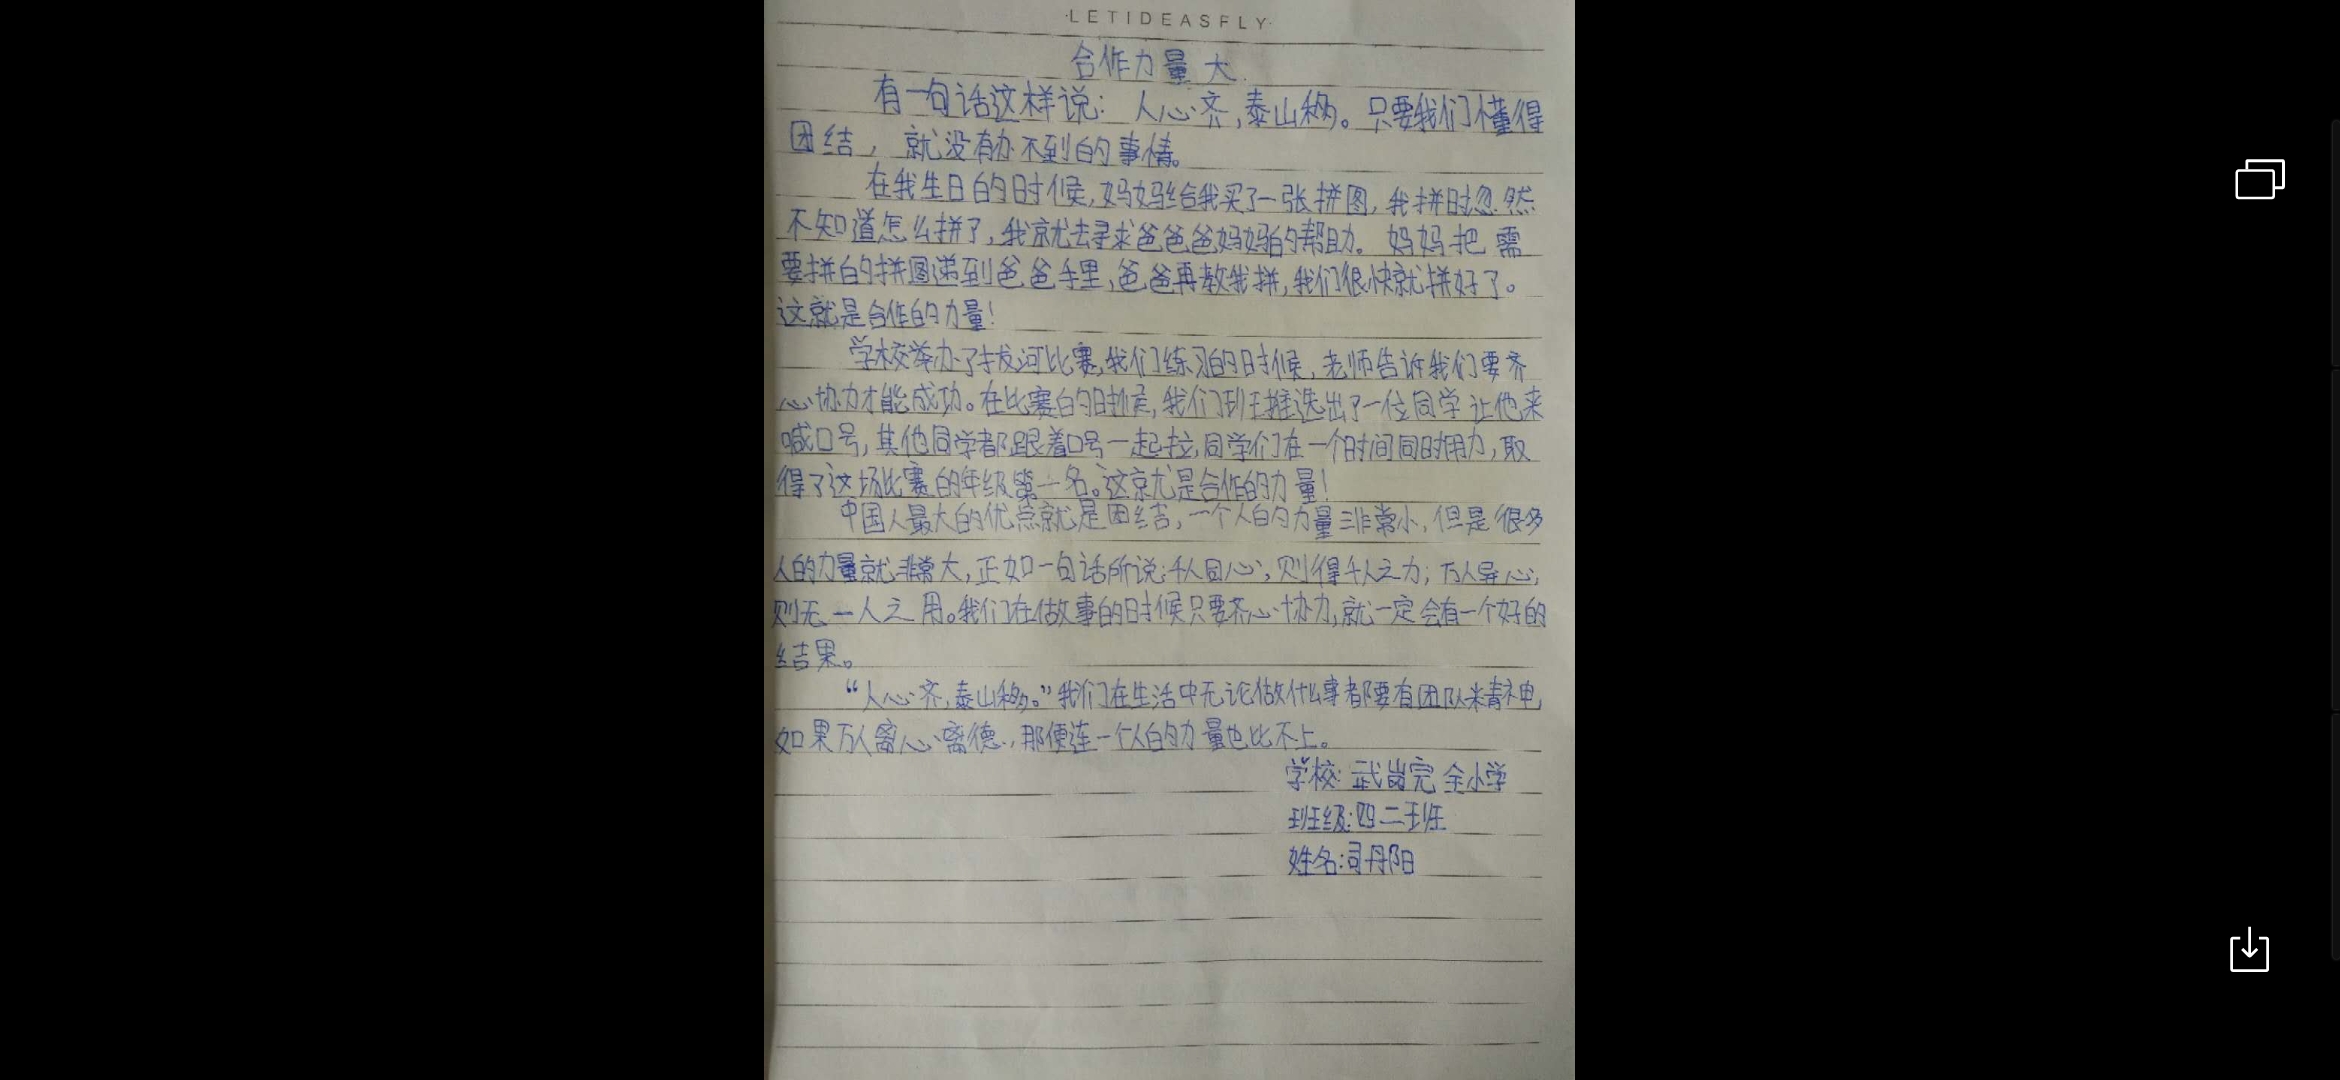 ·LETIDEASFLY·
合作力量大
有一句话这样说：人心齐,泰山移。只要我们懂得
团结，就没有办不到的事情。
在我生日的时候,妈妈给我买了一张拼图,我拼时忽然
不知道怎么拼了,我就去寻求爸爸爸妈妈的帮助。妈妈把需
要拼的拼图递到爸爸手里,爸爸再教我拼,我们很快就拼好了。
这就是合作的力量！
学校举办了拔河比赛,我们练习的时候,老师告诉我们要齐
心协力才能成功。在比赛的时候,我们班推选出了一位同学让他来
喊口号,其他同学都跟着口号一起拉,同学们在一个时间同时用力,取
得了这场比赛的年级第一名。这就是合作的力量！
中国人最大的优点就是团结,一个人的力量非常小,但是很多
人的力量就非常大,正如一句话所说:千人同心,则得千人之力;万人异心,
则无一人之用。我们在做事的时候只要齐心协力,就一定会有一个好的
结果。
“人心齐,泰山移。”我们在生活中无论做什么事都要有团队精神,
如果万人离心离德,那便连一个人的力量也比不上。
学校:武岗完全小学
班级:四二班
姓名:司丹阳